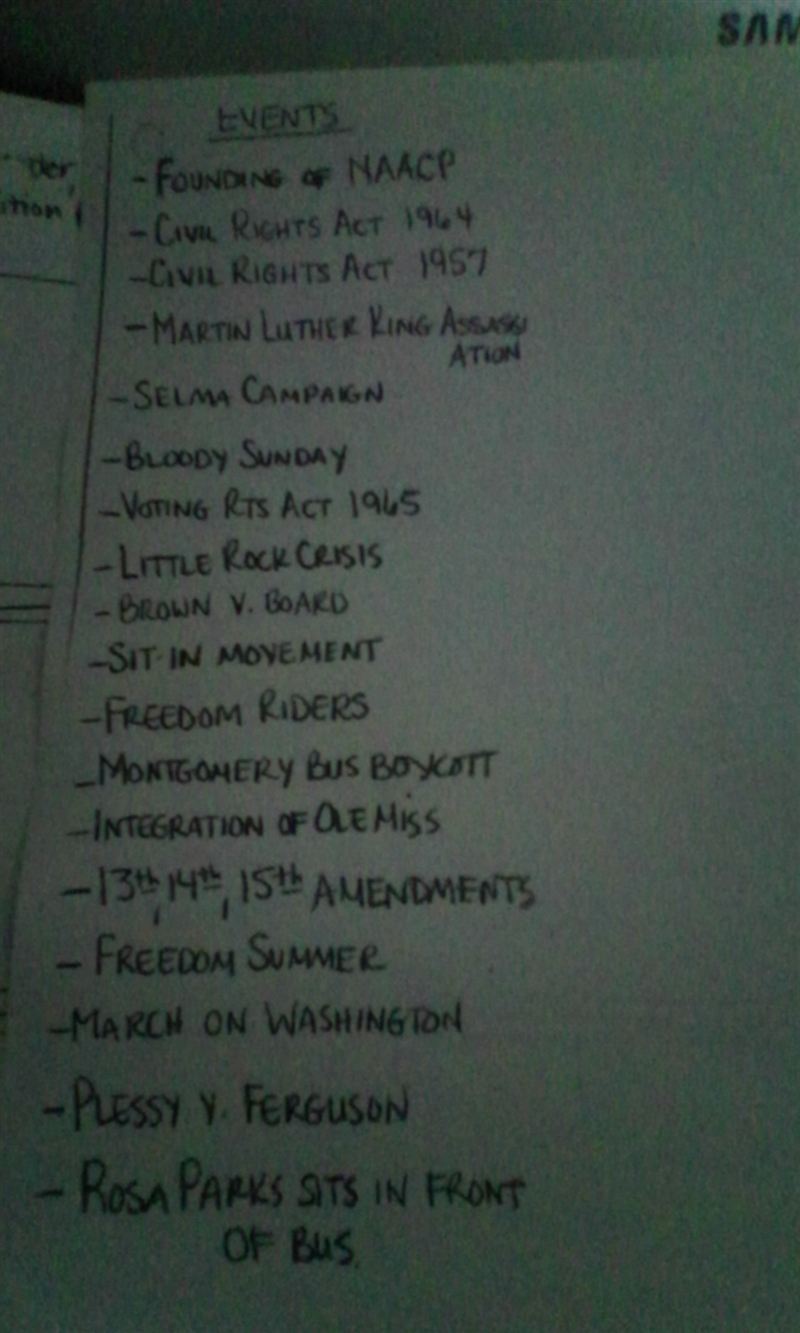 SAM
EVENTS
- FOUNDING OF NAACP
- CIVIL RIGHTS ACT 1964
- CIVIL RIGHTS ACT 1957
- MARTIN LUTHER KING ASSASSI
ATION
- SELMA CAMPAIGN
- BLOODY SUNDAY
- VOTING RTS ACT 1965
- LITTLE ROCK CRISIS
- BROWN V. BOARD
- SIT-IN MOVEMENT
- FREEDOM RIDERS
- MONTGOMERY BUS BOYCOTT
- INTEGRATION OF OLE MISS
- 13th, 14th, 15th AMENDMENTS
- FREEDOM SUMMER
- MARCH ON WASHINGTON
- PLESSY V. FERGUSON
- ROSA PARKS SITS IN FRONT
OF BUS.